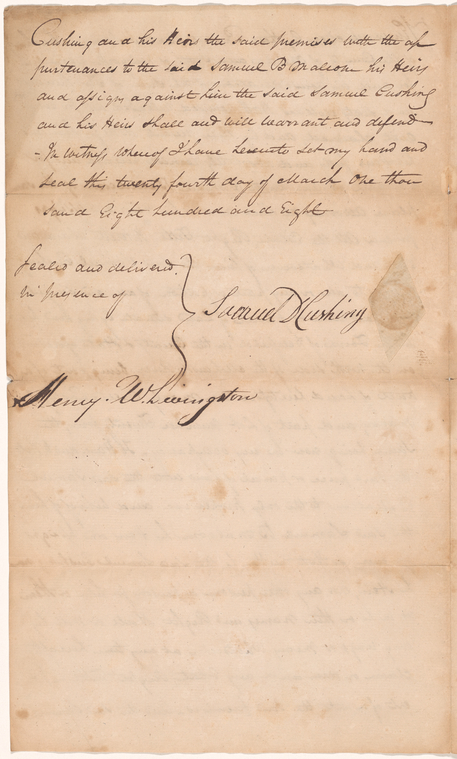 Cushing and his Heirs the said premises with the ap
purtenances to the said Samuel B Malcom his Heirs
and assigns against him the said Samuel Cushing
and his Heirs shall and will warrant and defend
- In Witness whereof I have hereunto set my hand and
seal this twenty fourth day of March One thou
sand Eight hundred and Eight
Sealed and delivered
in presence of
Samuel D Cushing
Henry. W. Livingston